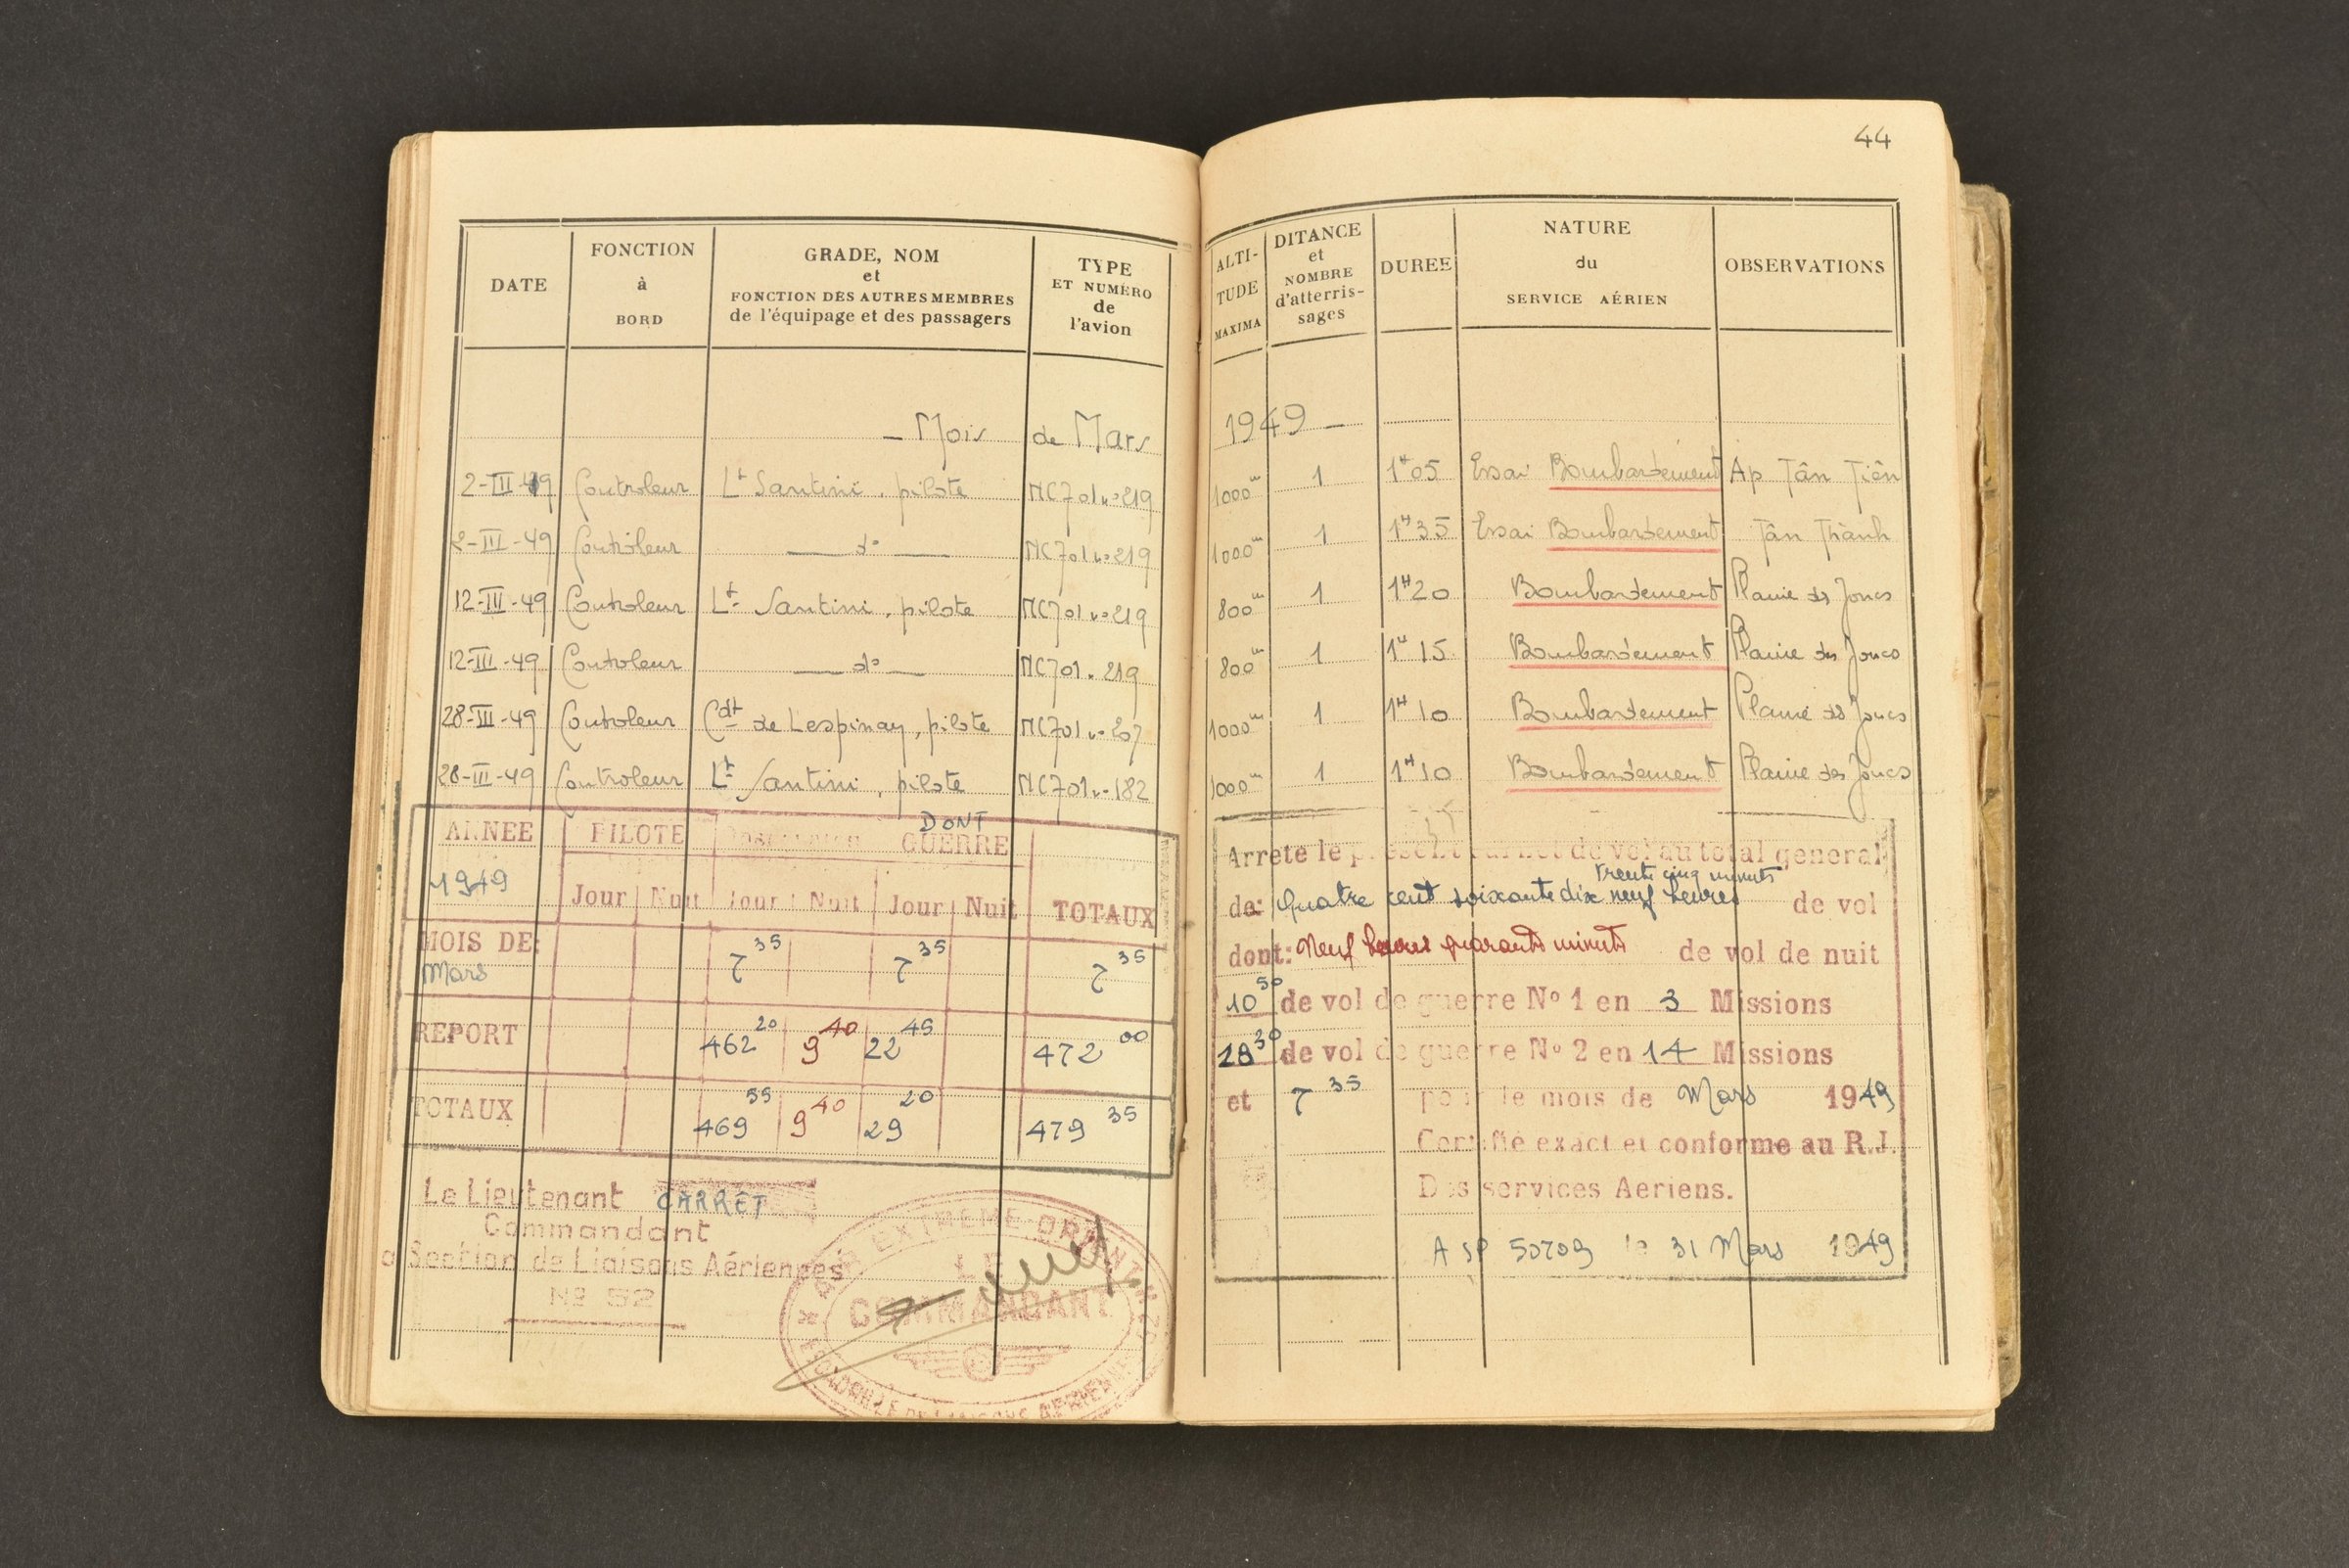 44
DATE
FONCTION
à
BORD
GRADE, NOM
et
FONCTION DES AUTRES MEMBRES
de l'équipage et des passagers
TYPE
ET NUMÉRO
de
l'avion
ALTI-
TUDE
MAXIMA
DITANCE
et
NOMBRE
d'atterris-
sages
DUREE
NATURE
du
SERVICE AÉRIEN
OBSERVATIONS
— Mois de Mars 1949 —
2-III-49 Controleur Lt Santini, pilote NC701 no 219 1000m 1 1H05 Essai Bombardement Ap Tân Tiên
2-III-49 Contrôleur — do — NC701 no 219 1000m 1 1H35 Essai Bombardement Tân Thành
12-III-49 Controleur Lt Santini, pilote NC701 no 219 800m 1 1H20 Bombardement Plaine des Joncs
12-III-49 Controleur — do — NC701 . 219 800m 1 1H15 Bombardement Plaine des Joncs
28-III-49 Controleur Cdt de Lespinay, pilote NC701 no 207 1000m 1 1H10 Bombardement Plaine des Joncs
28-III-49 Controleur Lt Santini, pilote NC701 no 182 1000m 1 1H10 Bombardement Plaine des Joncs
DONT
ANNEE PILOTE GUERRE
1949 Jour Nuit Jour Nuit Jour Nuit TOTAUX
MOIS DE:
Mars 7 35 7 35 7 35
REPORT 462 20 9 40 22 45 472 00
TOTAUX 469 55 9 40 29 20 479 35
Le Lieutenant CARRET
Commandant
a Section de Liaisons Aériennes
No 52
EXTREME-ORIENT
LE
COMMANDANT
ESCADRILLE DE LIAISONS AERIENNES
Arrete le présent carnet de vol au total general
trente cinq minutes
de: Quatre cent soixante dix neuf heures de vol
dont: Neuf heures quarante minutes de vol de nuit
10 50 de vol de guerre No 1 en 3 Missions
18 30 de vol de guerre No 2 en 14 Missions
et 7 35 pour le mois de Mars 1949
Certifié exact et conforme au R.J.
Des services Aeriens.
A SP 50703 le 31 Mars 1949